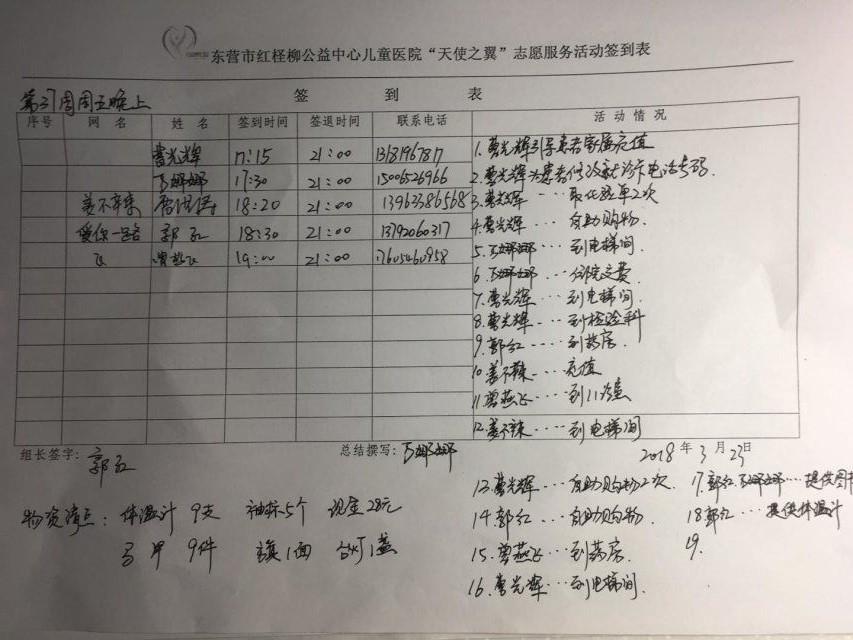 东营市红柽柳公益中心儿童医院“天使之翼”志愿服务活动签到表
签 到 表
第37周周五晚上
序号 网 名 姓 名 签到时间 签退时间 联系电话 活 动 情 况
曹光辉 17:15 21:00 1.曹光辉引导患者家属充值
17:30 21:00 15006526966 2.曹光辉为患者修改就诊卡电话号码.
姜不辣 18:20 21:00 13963386568 3.曹光辉…取化验单2次
爱你一路 郭红 18:30 21:00 13792060317 4.曹光辉…自助购物.
飞 曾燕飞 19:00 21:00 17605460958 5.娜娜…到电梯间.
6.娜娜…住院交费
7.曹光辉…到电梯间.
8.曹光辉…到检验科
9.郭红…到药房.
10.姜不辣…充值
11.曾燕飞…到
12.姜不辣…到电梯间
组长签字: 郭红 总结撰写: 娜娜 2018年3月23日
13.曹光辉…自助购物2次
14.郭红…自助购物.
15.曾燕飞…到药房.
16.曹光辉…到电梯间.
17.郭红 娜娜…提供图书
18郭红…提供体温计
19.
物资清点: 体温计 9支 袖标5个 现金28元
马甲 9件 旗1面 台灯1盏